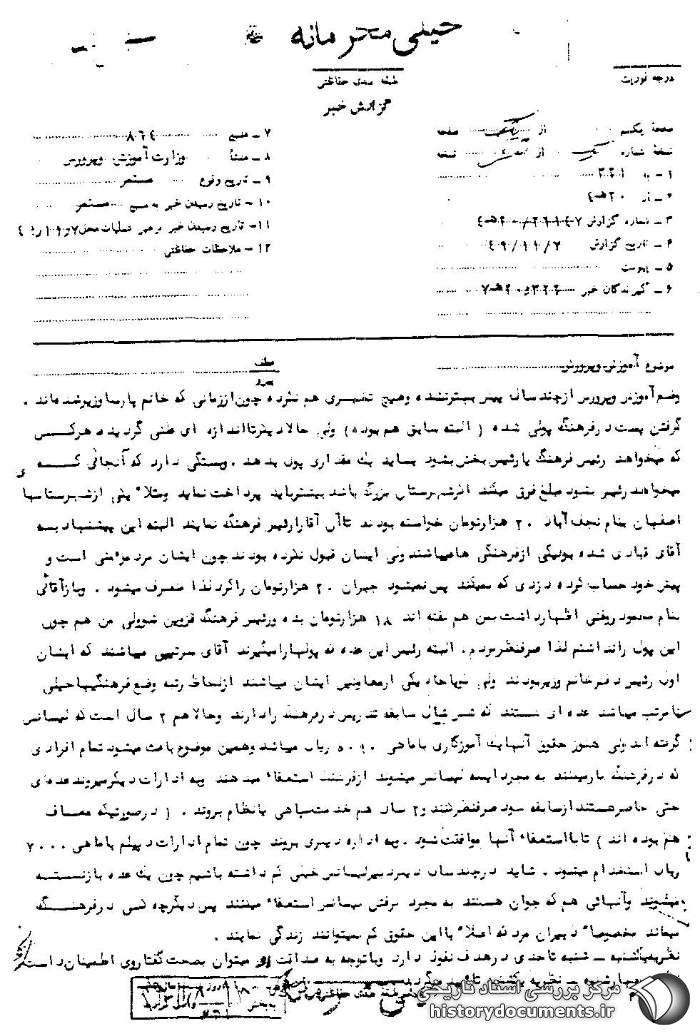 خیلی محرمانه
طبقه بندی حفاظتی
درجه فوریت
گزارش خبر
صفحهٔ یکم از یک صفحه
نسخهٔ شماره از نسخه
۱ – به ۳۲۱
۲ – از ۲۰ هـ ۴
۳ – شماره گزارش
۴ – تاریخ گزارش ۴۹/۱۱/۲
۵ – پیوست
۶ – گیرندگان خبر
۷ – منبع ۸۶۴
۸ – منشأ وزارت آموزش و پرورش
۹ – تاریخ وقوع مستمر
۱۰ – تاریخ رسیدن خبر به منبع مستمر
۱۱ – تاریخ رسیدن خبر به رهبر عملیات محل
۱۲ – ملاحظات حفاظتی
موضوع آموزش و پرورش
وضع آموزش و پرورش از چند سال پیش بهتر نشده و هیچ تغییری هم نکرده چون از زمانی که خانم پارسا وزیر شده اند .
گرفتن پست در فرهنگ پولی شده ( البته سابق هم بوده ) ولی حالا دیگر تا اندازه ای علنی گردیده هر کس
که میخواهد رئیس فرهنگ یا رئیس بخش بشود بباید یک مقداری پول بدهد . وبستگی دارد که آنجائی که
میخواهد رئیس بشود مبلغ فرق میکند اگر شهرستان بزرگ باشد بیشتر باید پرداخت نماید ومثلا یکی از شهرستانها
اصفهان بنام نجف آباد ۲۰ هزار تومان خواسته بودند تا آن آقا را رئیس فرهنگ نمایند البته این پیشنهاد به
آقای قبادی شده بود یکی از فرهنگی ها میباشند ولی ایشان قبول نکرده بودند چون ایشان مرد مؤمنی است و
پیش خود حساب کرده دزدی که نمیکند پس نمیشود جبران ۲۰ هزار تومان را کرد لذا منصرف میشود . وباز آقائی
بنام مسعود روغنی اظهار داشت بمن هم گفته اند ۱۸ هزار تومان بده و رئیس فرهنگ قزوین شو ولی من هم چون
این پول را نداشتم لذا صرفنظر کردم . البته رئیس این عده که پولها را میگیرند آقای میباشند که ایشان
اول رئیس دفتر خانم وزیر بودند ولی گویا حالا یکی از معاونین ایشان میباشند از لحاظ رتبه وضع فرهنگیها خیلی
نا مرتب میباشد عده ای هستند که شش سال سابقه تدریس در فرهنگ را دارند وحالا هم ۲ سال است که لیسانس
گرفته اند ولی هنوز حقوق آنها یک آموزگاری با ماهی ۵۰۹۰ ریال میباشد وهمین موضوع باعث میشود تمام افرادی
که در فرهنگ کار میکنند به مجرد اینکه لیسانس میشوند از فرهنگ استعفاء میدهند وبه ادارات دیگر میروند عده ای
حتی حاضر هستند از سابقه خود صرفنظر کنند و ۲ سال هم خدمت سپاهی یا نظام بروند . ( در صورتیکه معاف
هم بوده اند ) تا با استعفاء آنها موافقت شود . وبه اداره دیگری بروند چون تمام ادارات دیپلم با ماهی ۷۰۰۰
ریال استخدام میشود . شاید در چند سال دیگر دبیر لیسانس خیلی کم داشته باشیم چون یک عده بازنشسته
میشوند وآنهائی هم که جوان هستند به مجرد گرفتن لیسانس استعفاء میکنند پس دیگر چه کسی در فرهنگ
میماند مخصوصاً دبیران مرد که اصلاً با این حقوق کم نمیتوانند زندگی نمایند .
نظریه یکشنبه – شنبه تا حدی در هدف نفوذ دارد وبا توجه به صداقت او میتوان بصحت گفتار وی اطمینان داشت
مرکز بررسی اسناد تاریخی
historydocuments.ir